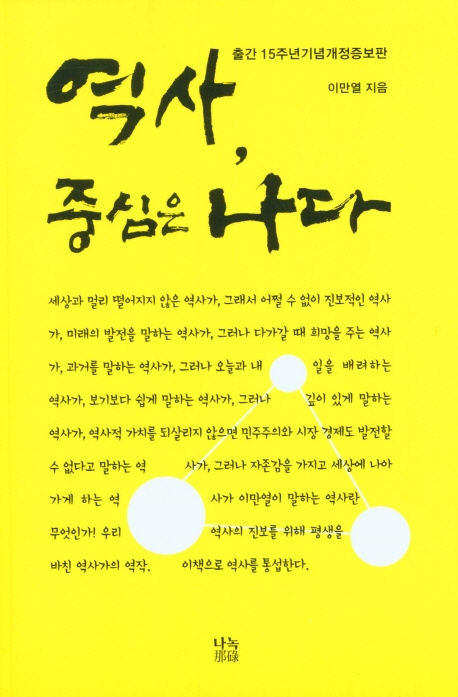 출간 15주년기념개정증보판
이만열 지음
역사,
중심은 나다
세상과 멀리 떨어지지 않은 역사가, 그래서 어쩔 수 없이 진보적인 역사
가, 미래의 발전을 말하는 역사가, 그러나 다가갈 때 희망을 주는 역사
가, 과거를 말하는 역사가, 그러나 오늘과 내 일을 배려하는
역사가, 보기보다 쉽게 말하는 역사가, 그러나 깊이 있게 말하는
역사가, 역사적 가치를 되살리지 않으면 민주주의와 시장 경제도 발전할
수 없다고 말하는 역 사가, 그러나 자존감을 가지고 세상에 나아
가게 하는 역 사가 이만열이 말하는 역사란
무엇인가! 우리 역사의 진보를 위해 평생을
바친 역사가의 역작. 이책으로 역사를 통섭한다.
나녹
那碌